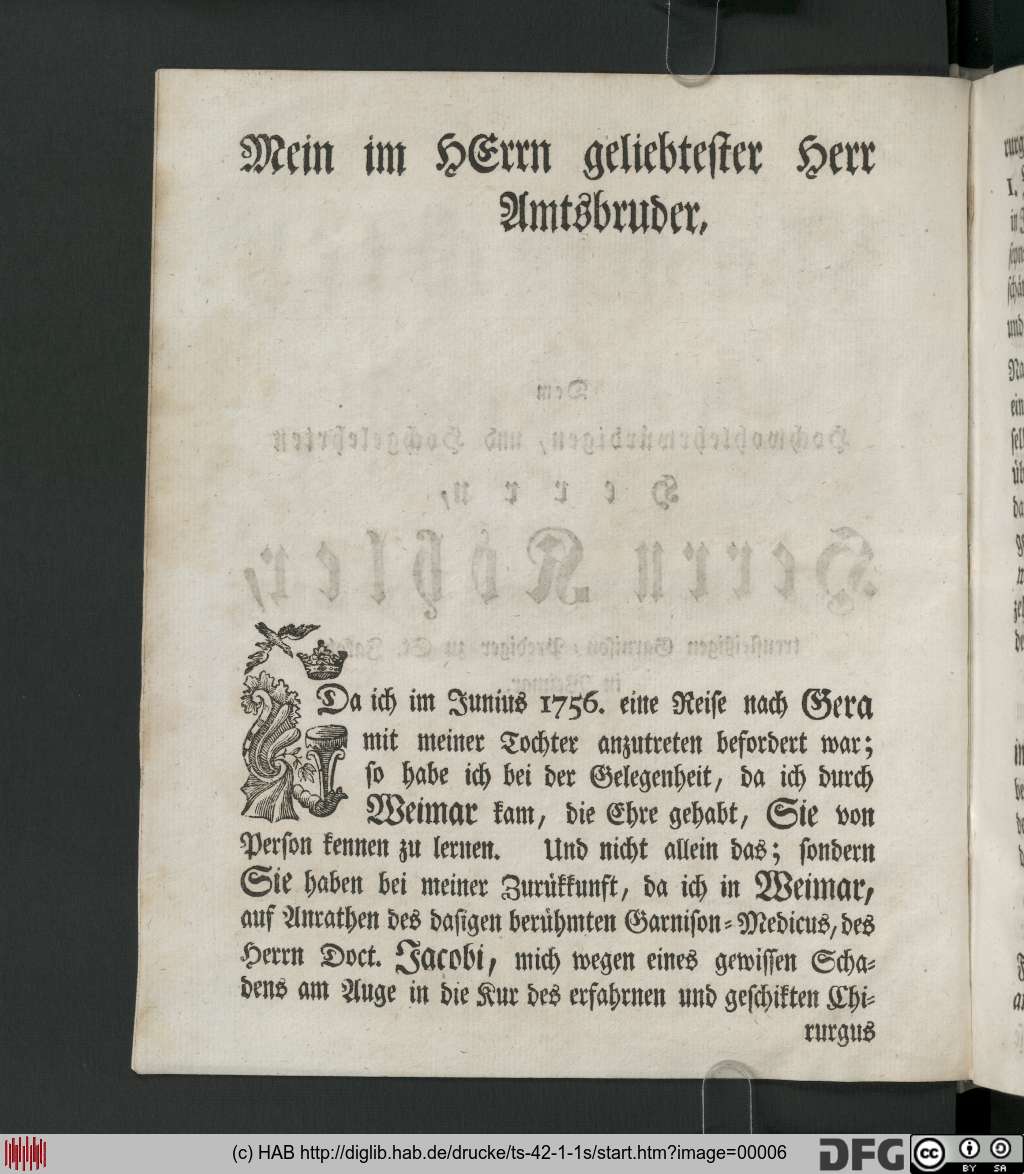 Mein im HErrn geliebtester Herr
Amtsbruder,
Dem
Hochwohlehrwürdigen, und Hochgelehrten
Herrn,
Herrn Köhler,
Da ich im Junius 1756. eine Reise nach Gera
mit meiner Tochter anzutreten befordert war;
so habe ich bei der Gelegenheit, da ich durch
Weimar kam, die Ehre gehabt, Sie von
Person kennen zu lernen. Und nicht allein das; sondern
Sie haben bei meiner Zurükkunft, da ich in Weimar,
auf Anrathen des dasigen berühmten Garnison-Medicus, des
Herrn Doct. Jacobi, mich wegen eines gewissen Scha-
dens am Auge in die Kur des erfahrnen und geschikten Chi-
rurgus
(c) HAB http://diglib.hab.de/drucke/ts-42-1-1s/start.htm?image=00006
DFG
cc BY SA